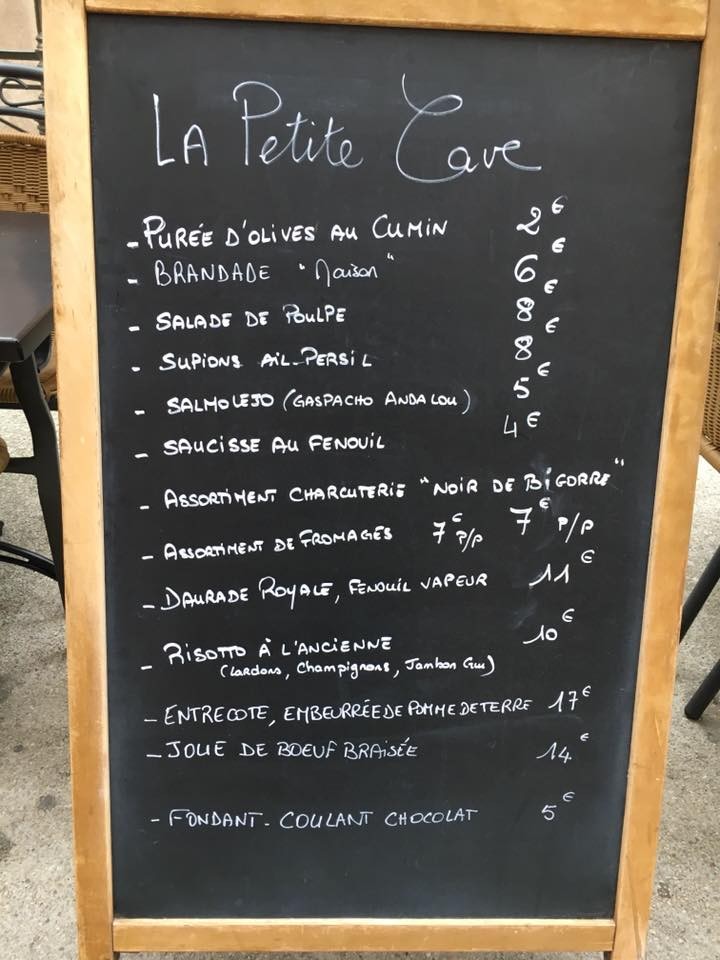 LA Petite Cave
- PURÉE D'OLIVES AU CUMIN 2€
- BRANDADE "Maison" 6€
- SALADE DE POULPE 8€
- SUPIONS AIL-PERSIL 8€
- SALMOLEJO (GASPACHO ANDALOU) 5€
- SAUCISSE AU FENOUIL 4€
- ASSORTIMENT CHARCUTERIE "NOIR DE BIGORRE"
7€ P/P
- ASSORTIMENT DE FROMAGES 7€ P/P
- DAURADE ROYALE, FENOUIL VAPEUR 11€
- RISOTTO À L'ANCIENNE 10€
(Lardons, Champignons, Jambon Cru)
- ENTRECOTE, EMBEURRÉE DE POMME DE TERRE 17€
- JOUE DE BOEUF BRAISÉE 14€
- FONDANT-COULANT CHOCOLAT 5€